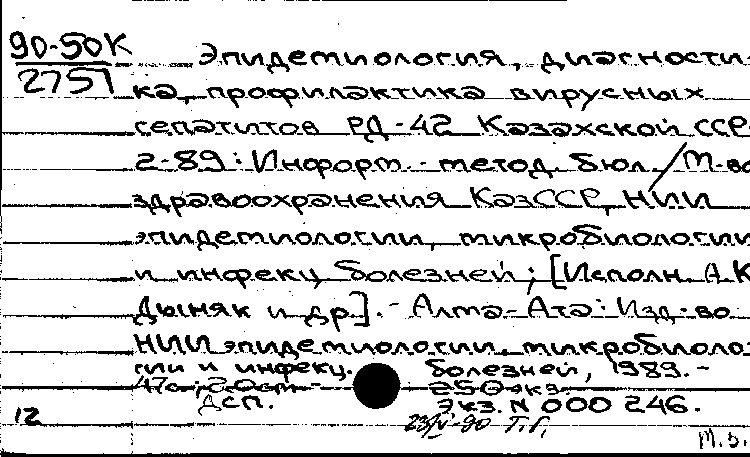 90-50К
2751
Эпидемиология, диагности-
ка, профилактика вирусных
гепатитов РД-42 Казахской ССР
2-89: Информ.-метод. бюл./М-во
здравоохранения КазССР, НИИ
эпидемиологии, микробиологии
и инфекц. болезней; [Исполн. А.К.
Дыняк и др]. - Алма-Ата: Изд-во
НИИ эпидемиологии, микробиоло-
гии и инфекц. болезней, 1989. -
250 экз.
ДСП.
Экз. N 000 246.
12
23/V-90 Т.Г.